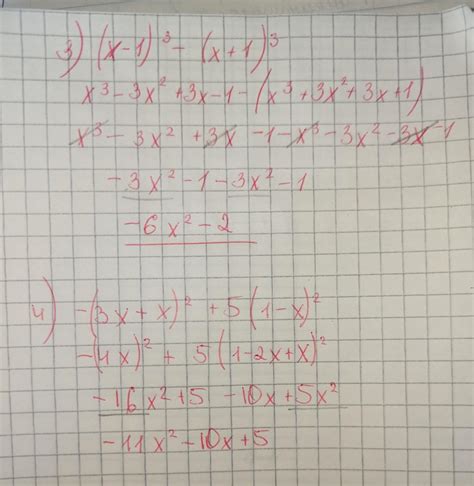 3) (x-1)³ - (x+1)³
x³ - 3x² + 3x - 1 - (x³ + 3x² + 3x + 1)
x³ - 3x² + 3x - 1 - x³ - 3x² - 3x - 1
-3x² - 1 - 3x² - 1
-6x² - 2
4) -(3x + x)² + 5(1 - x)²
-(4x)² + 5(1 - 2x + x)²
-16x² + 5 - 10x + 5x²
-11x² - 10x + 5